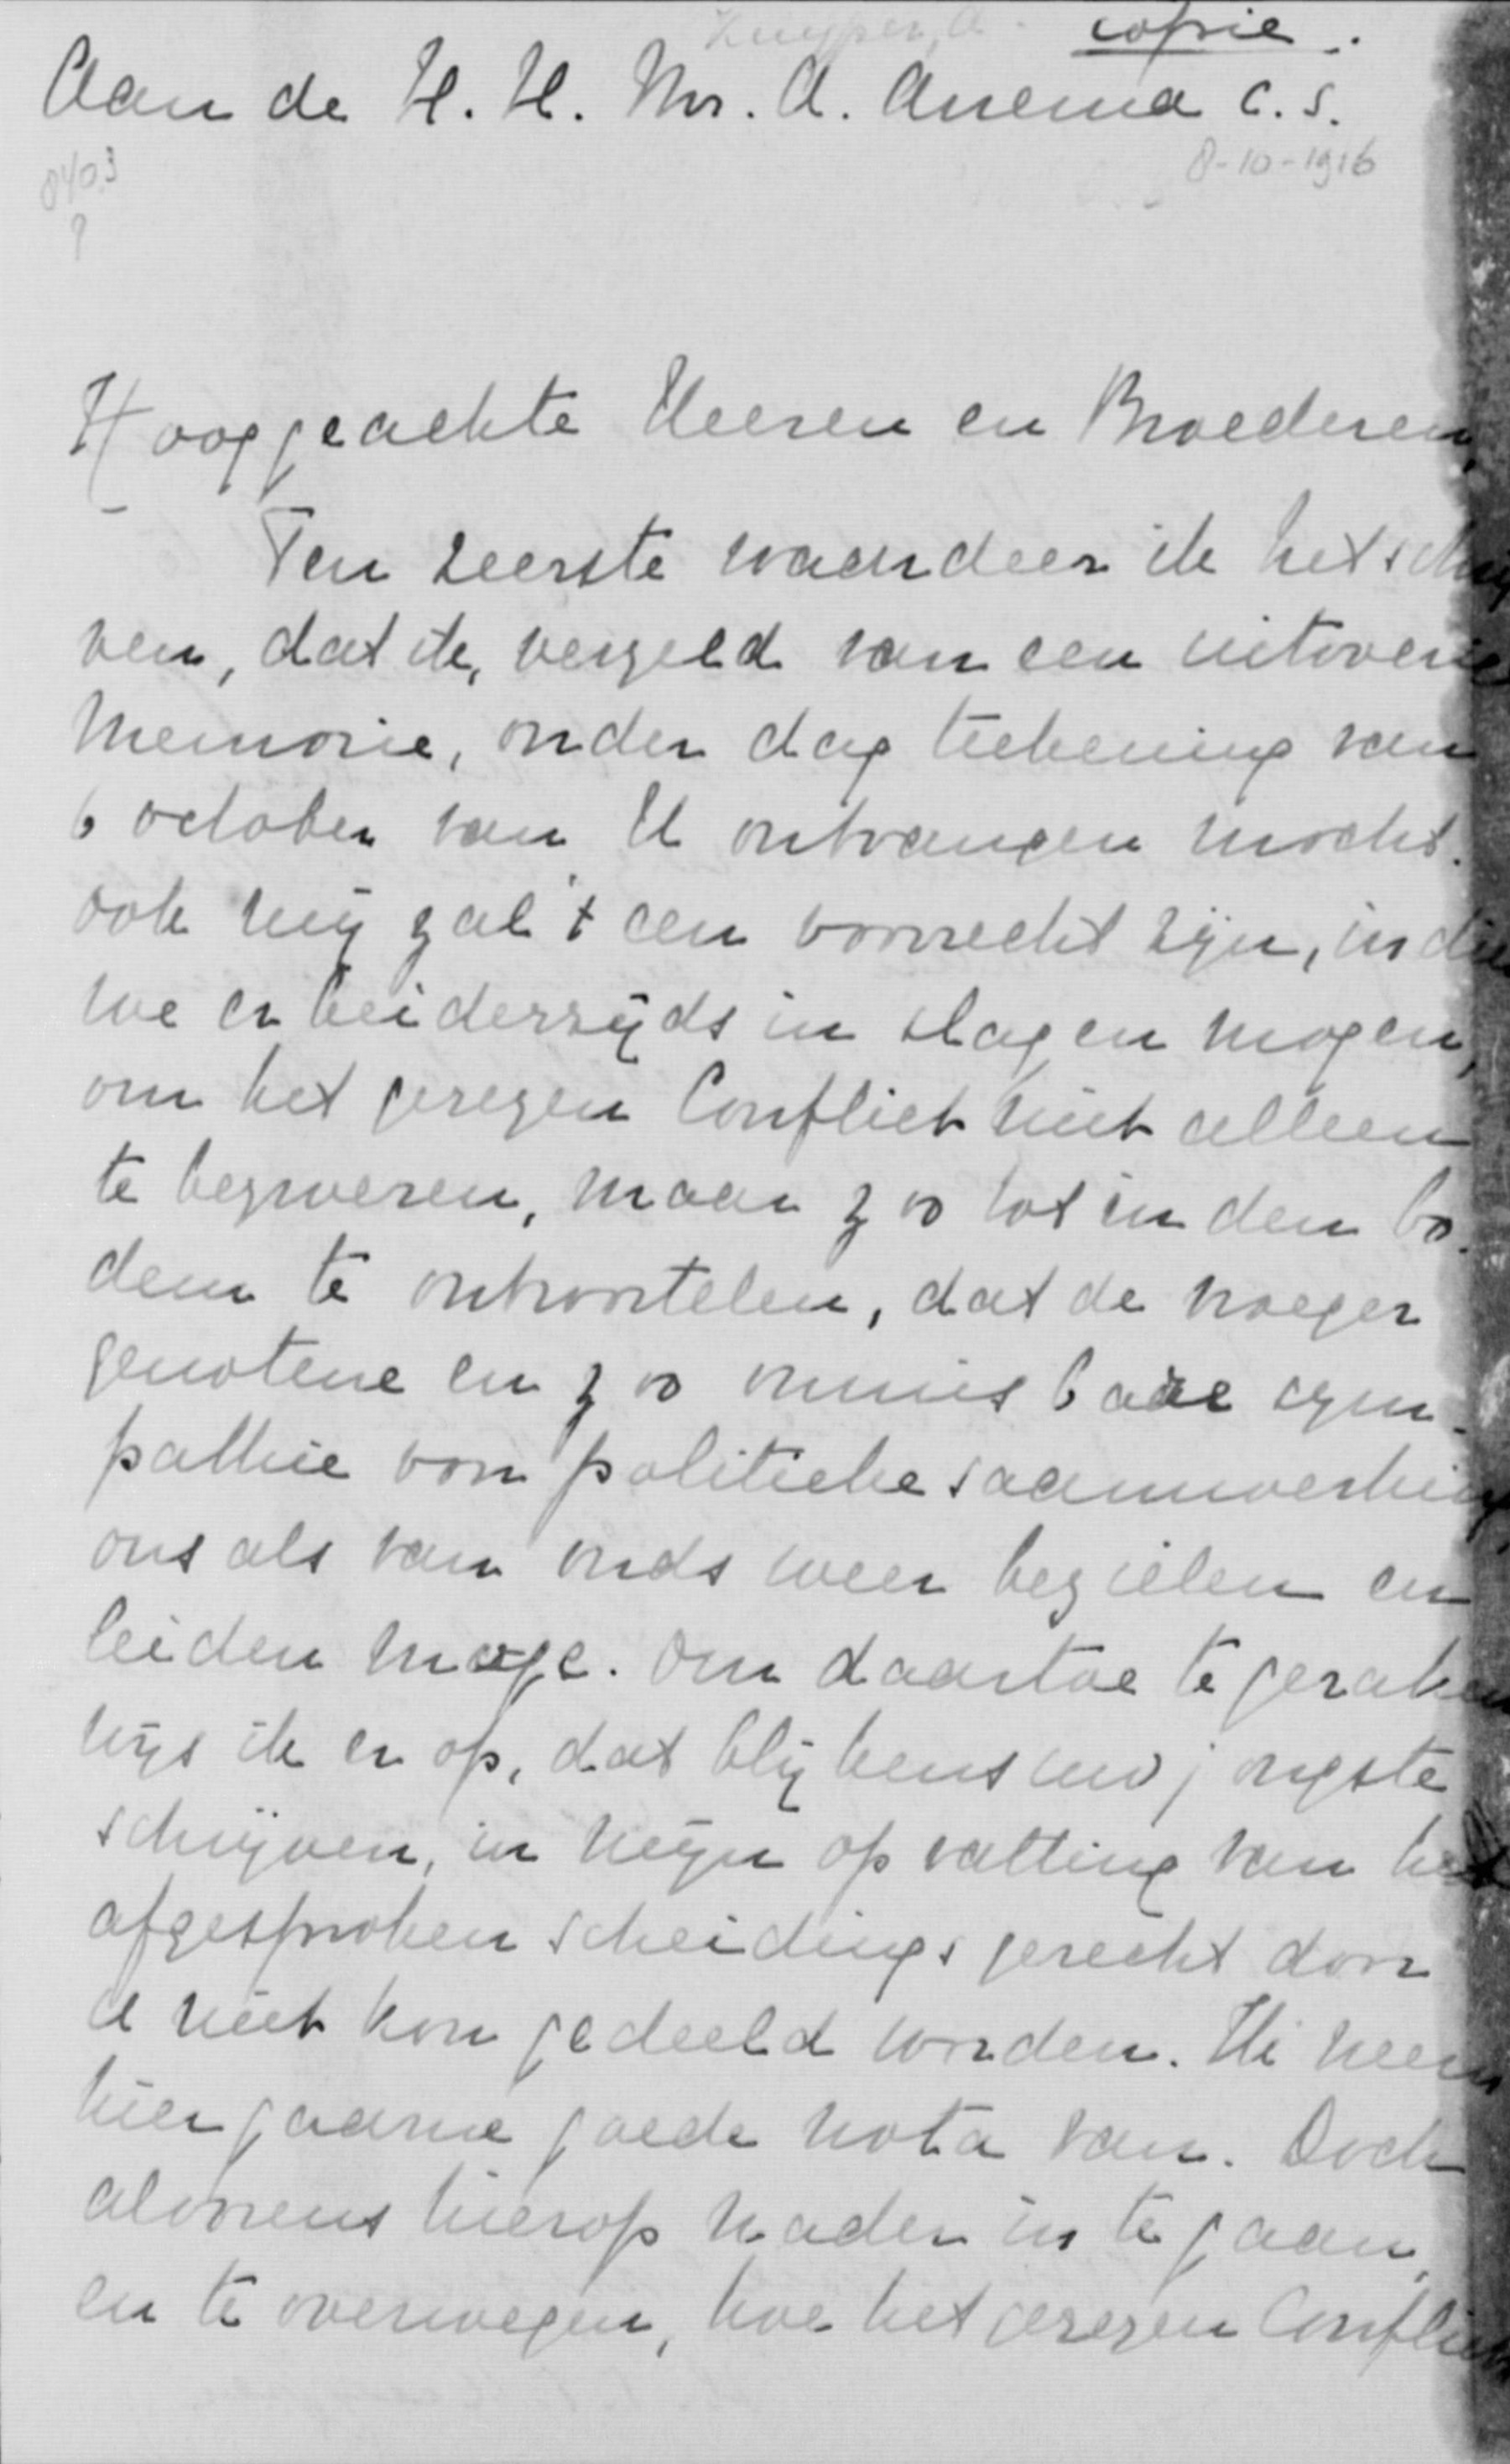 Kuyper, A. copie.
Aan de H. H. Mr. A. Anema c. s.
8-10-1916
8403
?
Hooggeachte Heeren en Broederen,
Ten zeerste waardeer ik het schrij
ven, dat ik, vergeld van een uitvoerige
Memorie, onder dag teekening van
6 october van U ontvangen mocht.
ook mij zal 't een voorrecht zijn, indien
we er beiderzijds in slagen mogen,
om het gerezen Conflict niet alleen
te bezweren, maar zoo tot in den bo-
dem te ontwortelen, dat de vroeger
genotene en zoo onmisbare sym-
pathie voor politieke saamwerking
ons als van ouds weer bezielen en
leiden moge. Om daartoe te geraken
wijs ik er op, dat blijkens uw jongste
schrijven, in mijn opvatting van het
afgesproken scheidingsgerecht door
U niet kon gedeeld worden. Ik neem
hier gaarne goede nota van. Doch
alvorens hierop nader in te gaan,
en te overwegen, hoe het gerezen Conflict